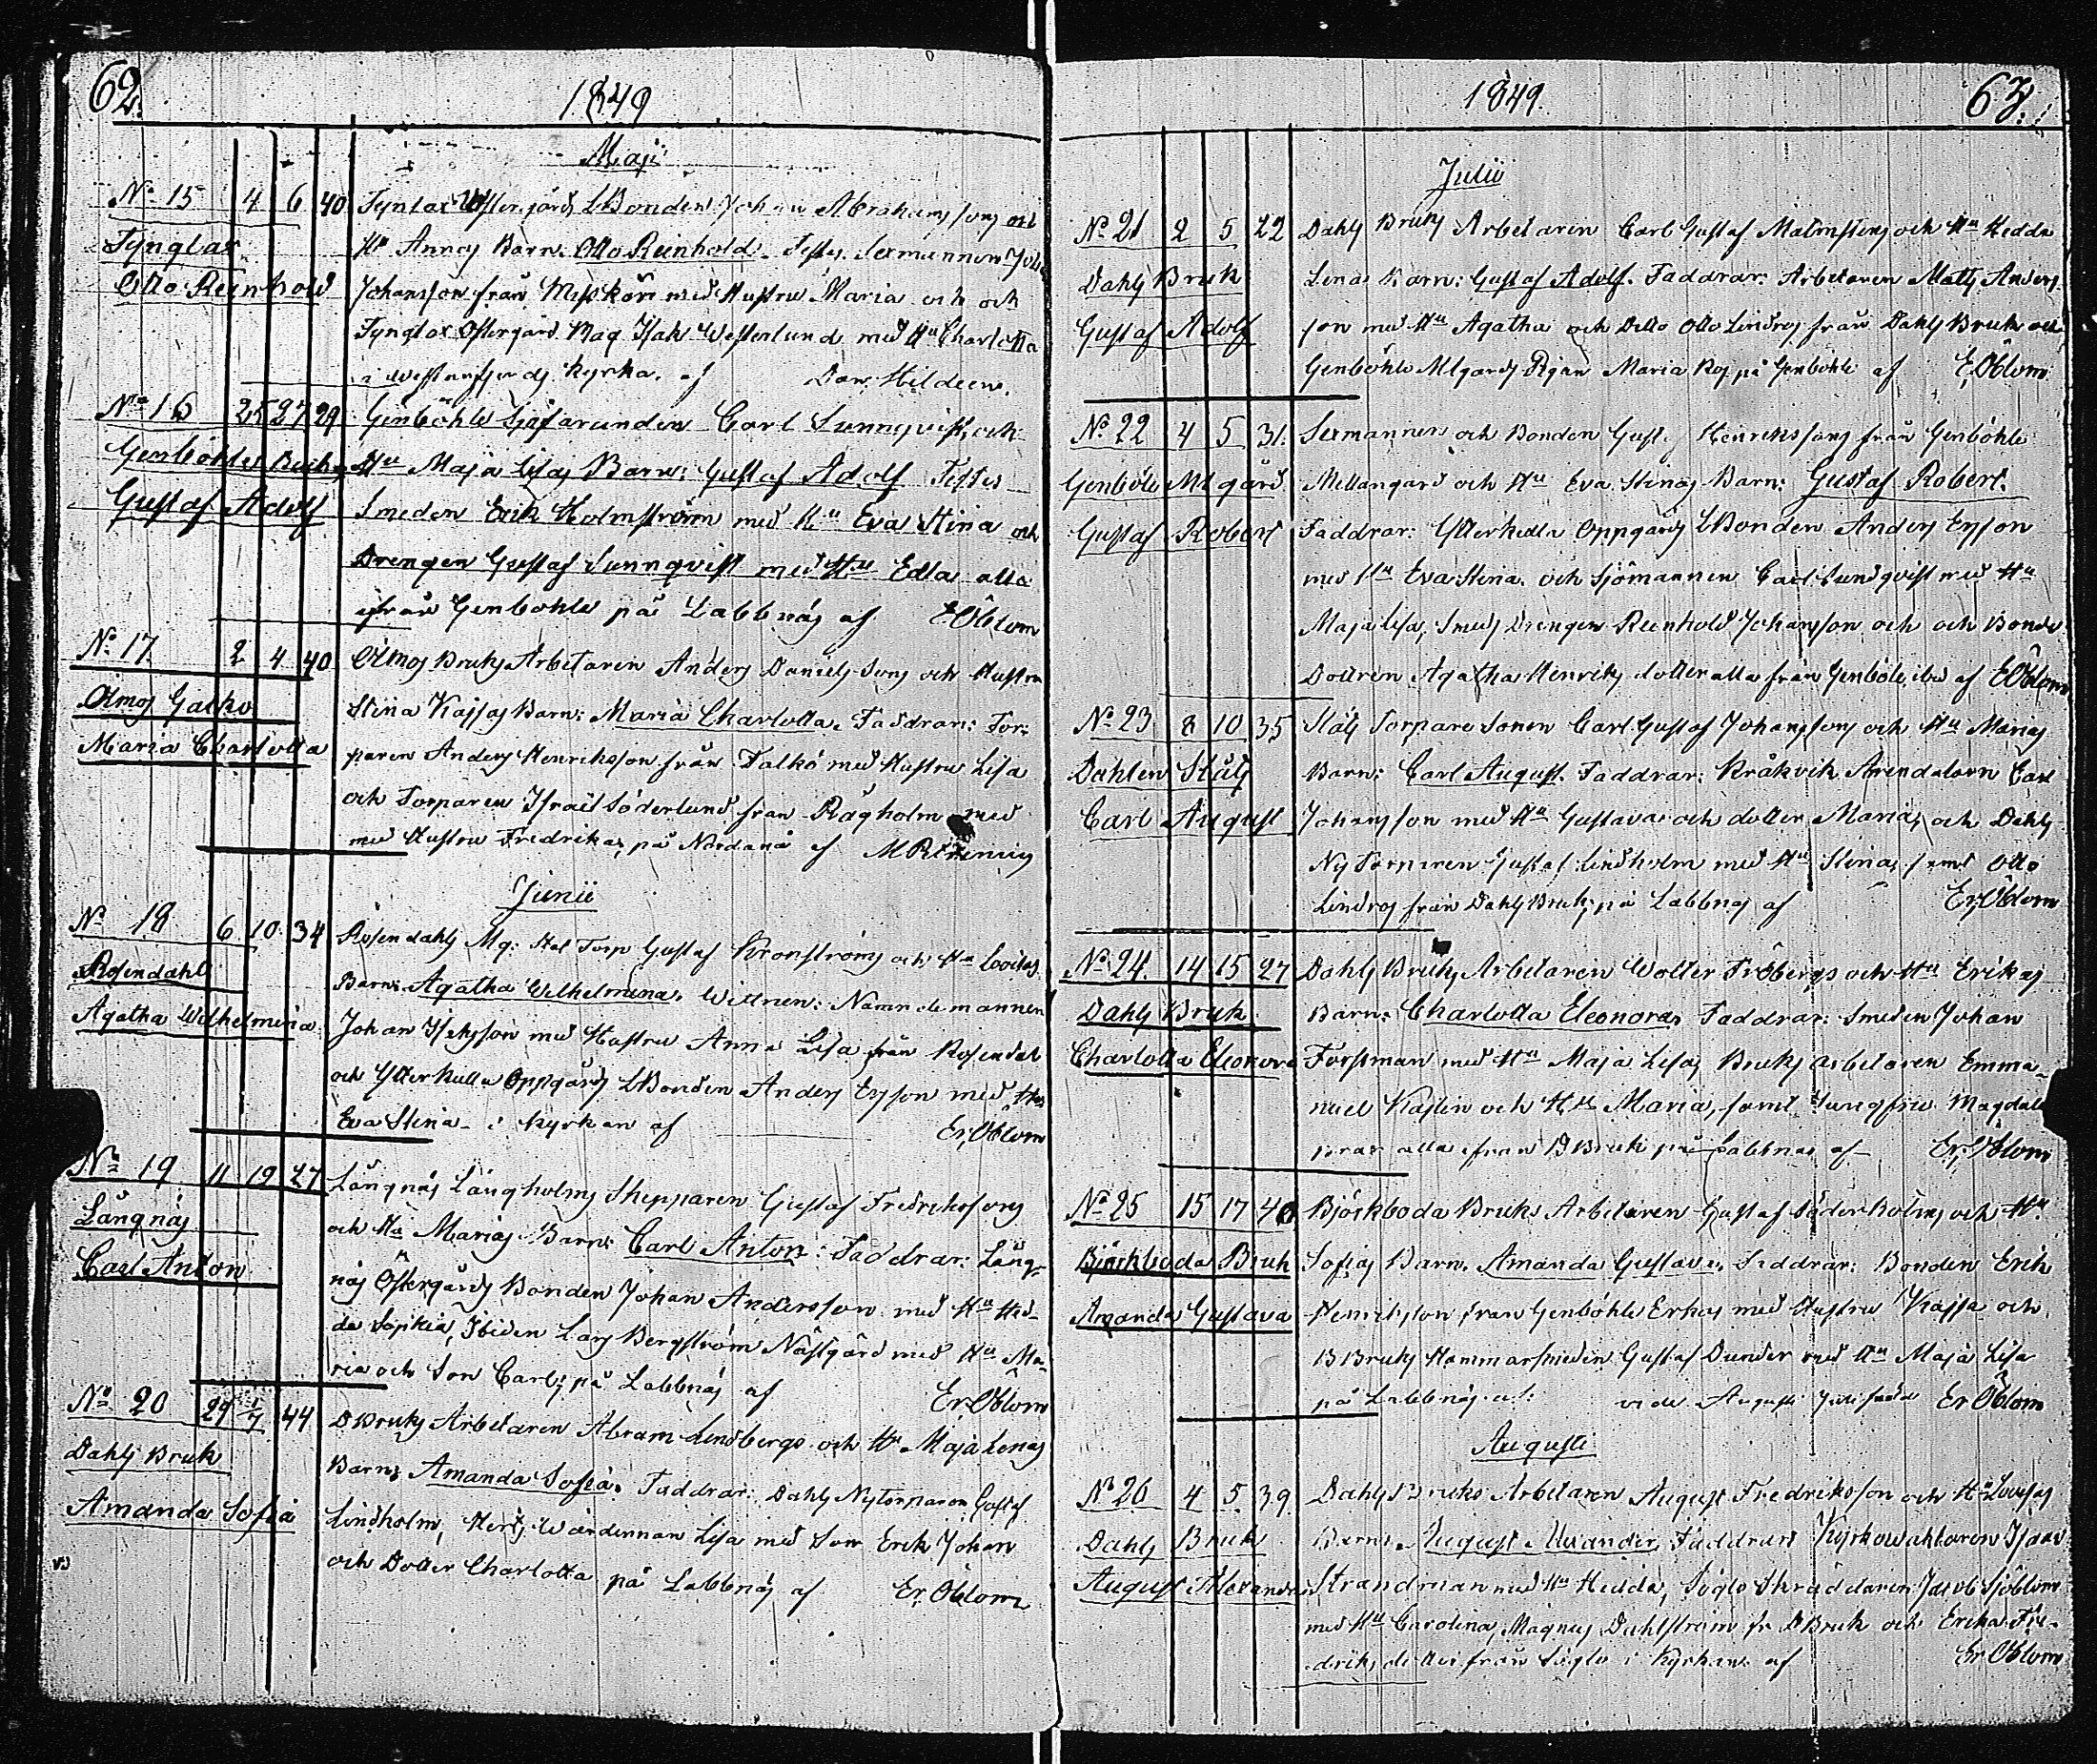 62.
1849
Maji
No 15 4 6 40 Tynglax Östergårds LBonden Johan Abrahamssons och
Tynglax Hu Annas Barn: Otto Reinhold. Testes. Sexmannen
Otto Reinhold Johansson från Misskärr med Hustru Maria och och
Tynglax Östergård Mag Isak Westerlund med Hu Charlotta
i Westanfjerds Kyrka. af
No 16 25 27 29 Genböhle Sjöfaranden Carl Sunnqvists och
Genböhle Hu Maja Lisas Barn: Gustaf Adolf Testes
Gustaf Adolf Smeden Erik Holmström med Hu Eva Stina och
Drengen Gustaf Sunnqvist med Hu Edla alla
ifrån Genböhle på Labbnäs af EÖblom
No 17 2 4 40 Ölmos Bruks Arbetaren Anders Danielssons och Hustru
Ölmos Galko Stina Kajsas Barn: Maria Charlotta. Faddrar: Tor-
Maria Charlotta paren Anders Henriksson från Falkö med Hustru Lisa
och Torparen Israel Söderlund från Rågholm med
med Hustru Fredrika, på Nordanå af
Junii
No 18 6 10 34 Rosendahls Mg: Torp Gustaf Kronströms och Hu Lovisas
Rosendahl Barn: Agatha Wilhelmina. Wittnen: Nämndemannen
Agatha Wilhelmina Johan Isaksson med Hustru Anna Lisa från Rosendal
och Ytterkulla Oppgårds LBonden Anders Ersson med Hu
Eva Stina i Kyrkan af Er. Öblom
No 19 11 19 27 Långnäs Långholms Skepparen Gustaf Fredrikssons
Långnäs och Hu Marias Barn: Carl Anton: Faddrar: Lång-
Carl Anton näs Östergårds Bonden Johan Andersson med Hu Hed-
da Sophia, Ibidem Lars Bergström Nästgård med Hu Ma-
ria och Son Carl; på Labbnäs af Er Öblom
No 20 29 1/7 44 DBruks Arbetaren Abram Lindbergs och Hu Maja Lenas
Dahls Bruk Barn: Amanda Sofia. Faddrar: Dahls Nytorparen Gustaf
Amanda Sofia Lindholm, Wärdinnan Lisa med Son Erik Johan
och Dotter Charlotta på Labbnäs af Er. Öblom
1849.
63.
Julii
No 21 2 5 22 Dahls Bruks Arbetaren Carl Gustaf Malmstens och Hu Hedda
Dahls Bruk Lenas Barn: Gustaf Adolf. Faddrar: Arbetaren Matts Anders-
Gustaf Adolf son med Hu Agatha och Ditto Otto Lindros från Dahls Bruk och
Genböhle Mlgårds Pigan Maria Ros på Genböhle af EÖblom
No 22 4 5 31. Sexmannen och Bonden Gust. Henrikssons från Genböhle
Genböle Mlgård Mellangård och Hu Eva Stinas Barn: Gustaf Robert.
Gustaf Robert Faddrar: Ytterkulla Oppgårds LBonden Anders Ersson
med Hu Eva Stina. och Sjömannen Carl Sundqvist med Hu
Maja Lisa, Smeds Drengen Reinhold Johansson och och Bonde
Dottren Agatha Henriks dotter alla från Genböle, ibid af EÖblom
No 23 8 10 35 Ståls Torpare Sonen Carl Gustaf Johanssons och Hu Marias
Dahlen Ståls Barn: Carl August. Faddrar: Kråkvik Arendatorn Carl
Carl August Johansson med Hu Gustava och dotter Maria, och Dahls
Ny Torparen Gustaf Lindholm med Hu Stina, samt Otto
Lindros från Dahls Bruk, på Labbnäs af Er, Öblom
No 24. 14 15 27 Dahls Bruks Arbetaren Wolter Fröbergs och Hu Erikas
Dahls Bruk Barn: Charlotta Eleonora. Faddrar: Smeden Johan
Charlotta Eleonora Forssman med Hu Maja Lisa, Bruks arbetaren Emma-
nuel Kajlin och Hu Maria, samt Jungfru Magdale
alla ifrån DBruk på Labbnäs af Er. Öblom
No 25 15 17 40 Björkboda Bruks Arbetaren Gustaf Söderholms och Hu
Björkboda Bruk Sofias Barn. Amanda Gustava. Faddrar: Bonden Erik
Amanda Gustava Henriksson från Genböhle Erkas med Hustru Kajsa och
BBruks Hammarsmeden Gustaf Dunder med Hu Maja Lisa
på Labbnäs af: vide Augusti Er Öblom
Augusti
No 26 4 5 39 Dahls Bruks Arbetaren August Fredriksson och Hu Lovisas
Dahls Bruk Barn: August Alexander, Faddrar: Kyrkowaktaren Isaac
August Alexander Strandman med Hu Hedda, Söglö Skräddaren Jacob Sjöblom
med Hu Carolina, Magnus Dahlström fr DBruk och Erika Fre-
driks dotter från Söglö i Kyrkan af Er Öblom